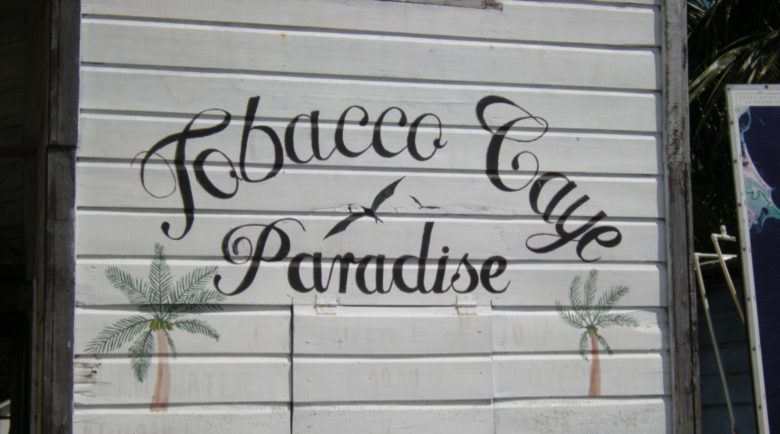 Tobacco Caye
Paradise